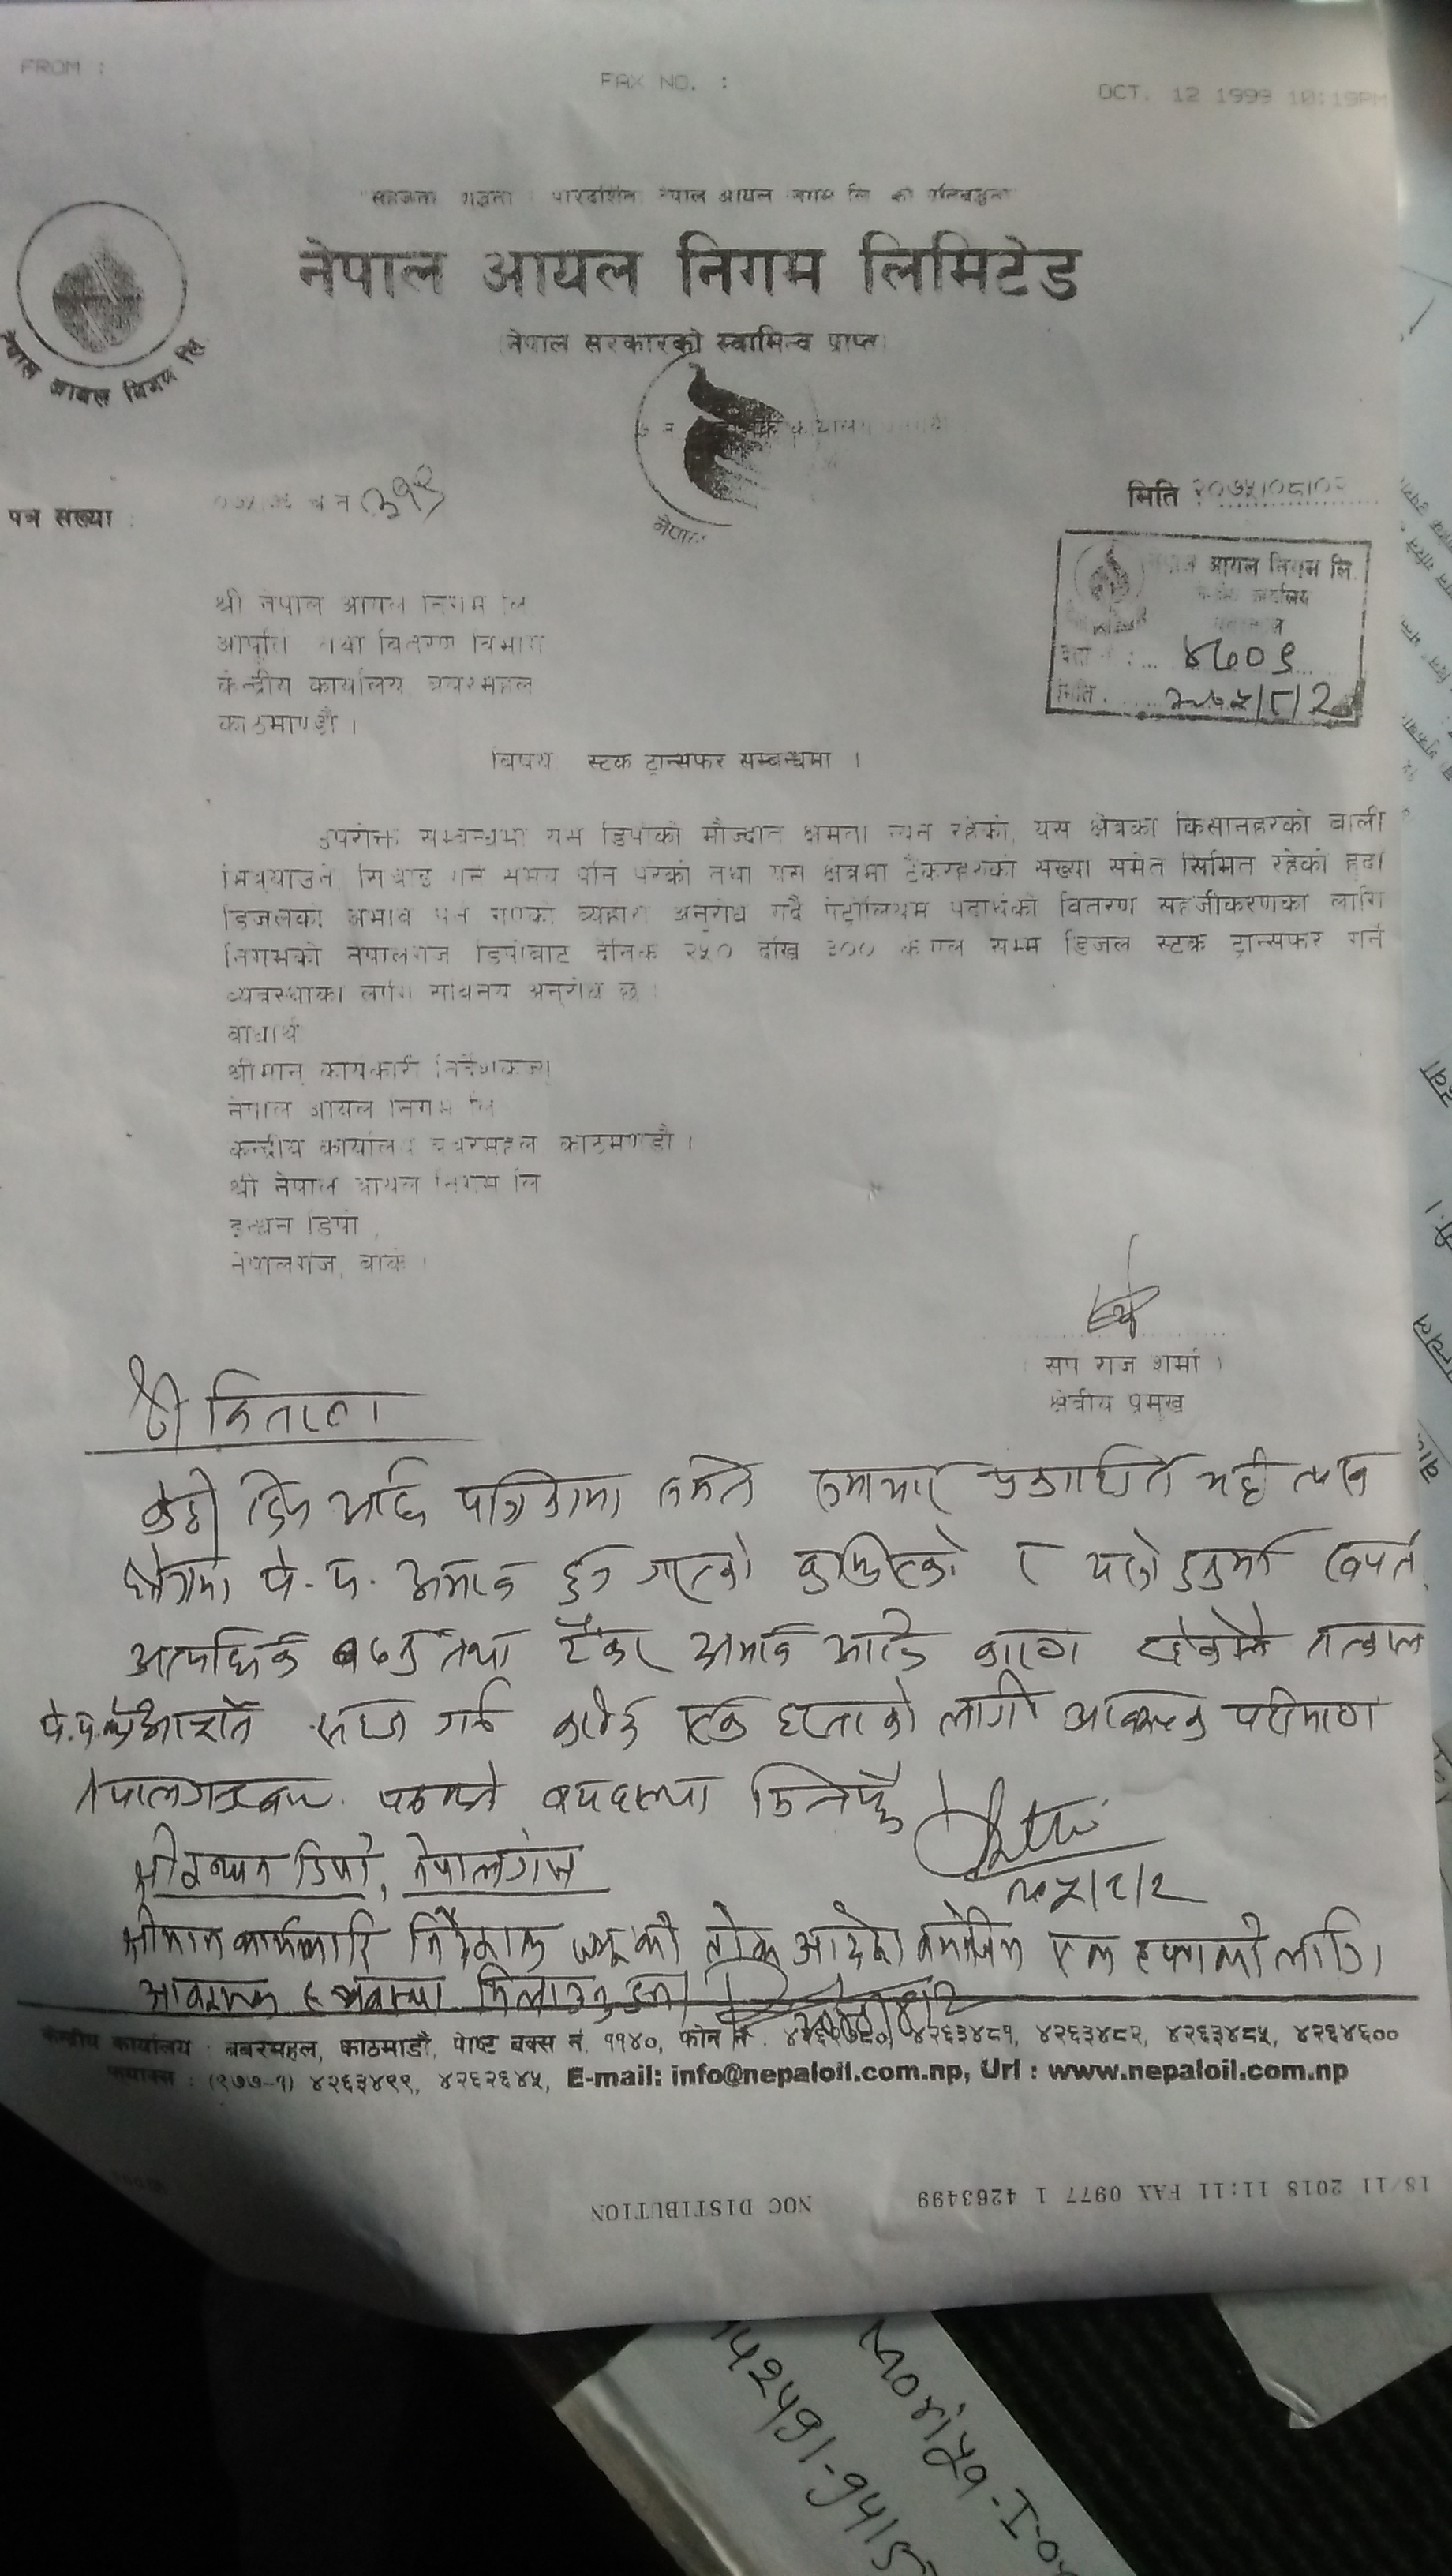 FROM :
FAX NO. :
OCT. 12 1999 10:19PM
नेपाल आयल निगम लि को
नेपाल आयल निगम लिमिटेड
(नेपाल सरकारको स्वामित्व प्राप्त)
नेपाल आयल निगम लि.
पत्र संख्या :
च नं ३१९
मिति २०७५।०८।०२
नेपाल आयल निगम लि.
४७०९
मिति : २०७५/८/2
श्री नेपाल आयल निगम लि
आपूर्ति तथा वितरण विभाग
केन्द्रीय कार्यालय बबरमहल
काठमाण्डौ ।
विषय स्टक ट्रान्सफर सम्बन्धमा ।
उपरोक्त सम्बन्धमा यस डिपोको मौज्दात क्षमता न्यून रहेको, यस क्षेत्रका किसानहरुको बाली
भित्र्याउने, सिंचाइ गर्ने समय पनि परेको तथा यस क्षेत्रमा टैंकरहरुको संख्या समेत सिमित रहेको हुदा
डिजलको अभाव हुन नगएको व्यहोरा अनुरोध गर्दै पेट्रोलियम पदार्थको वितरण सहजीकरणका लागि
निगमको नेपालगंज डिपोबाट दैनिक २५० देखि ३०० के एल सम्म डिजल स्टक ट्रान्सफर गर्न
व्यवस्थाका लागि सविनय अनुरोध छ ।
बोधार्थ
श्रीमान् कार्यकारी निर्देशकज्यू
नेपाल आयल निगम लि
केन्द्रीय कार्यालय बबरमहल काठमाण्डौ ।
श्री नेपाल आयल निगम लि
इन्धन डिपो,
नेपालगंज, बाँके ।
राज शर्मा
क्षेत्रीय प्रमुख
श्री वितरण
केही दिन अघि पत्रिकामा समेत समाचार प्रकाशित भई त्यस
क्षेत्रमा पे.प. अभाव हुन गएको र खपत
अत्यधिक बढ्नु तथा टैंकर अभाव आदि कारण रहेकोले तत्काल
पे.प. आपूर्ति सहज गर्न एक हप्ताको लागी आवश्यक परिमाण
नेपालगञ्जबाट पठाउने व्यवस्था मिलाउनुहोस्
७५/८/२
श्री इन्धन डिपो, नेपालगंज
श्रीमान कार्यकारि निर्देशक ज्यूको तोक आदेश बमोजिम एक हप्ताको लागि
आवश्यक व्यवस्था मिलाउनु हुन।
केन्द्रीय कार्यालय : बबरमहल, काठमाडौं, पोष्ट बक्स नं. ११४०, फोन नं. ४२६२९७०, ४२६३४८१, ४२६३४८२, ४२६३४८५, ४२६४६००
फ्याक्स : (९७७-१) ४२६३४९९, ४२६२६४५, E-mail: info@nepaloil.com.np, Url : www.nepaloil.com.np
18/11 2018 11:11 FAX 0977 1 4263499 NOC DISTIBUTION